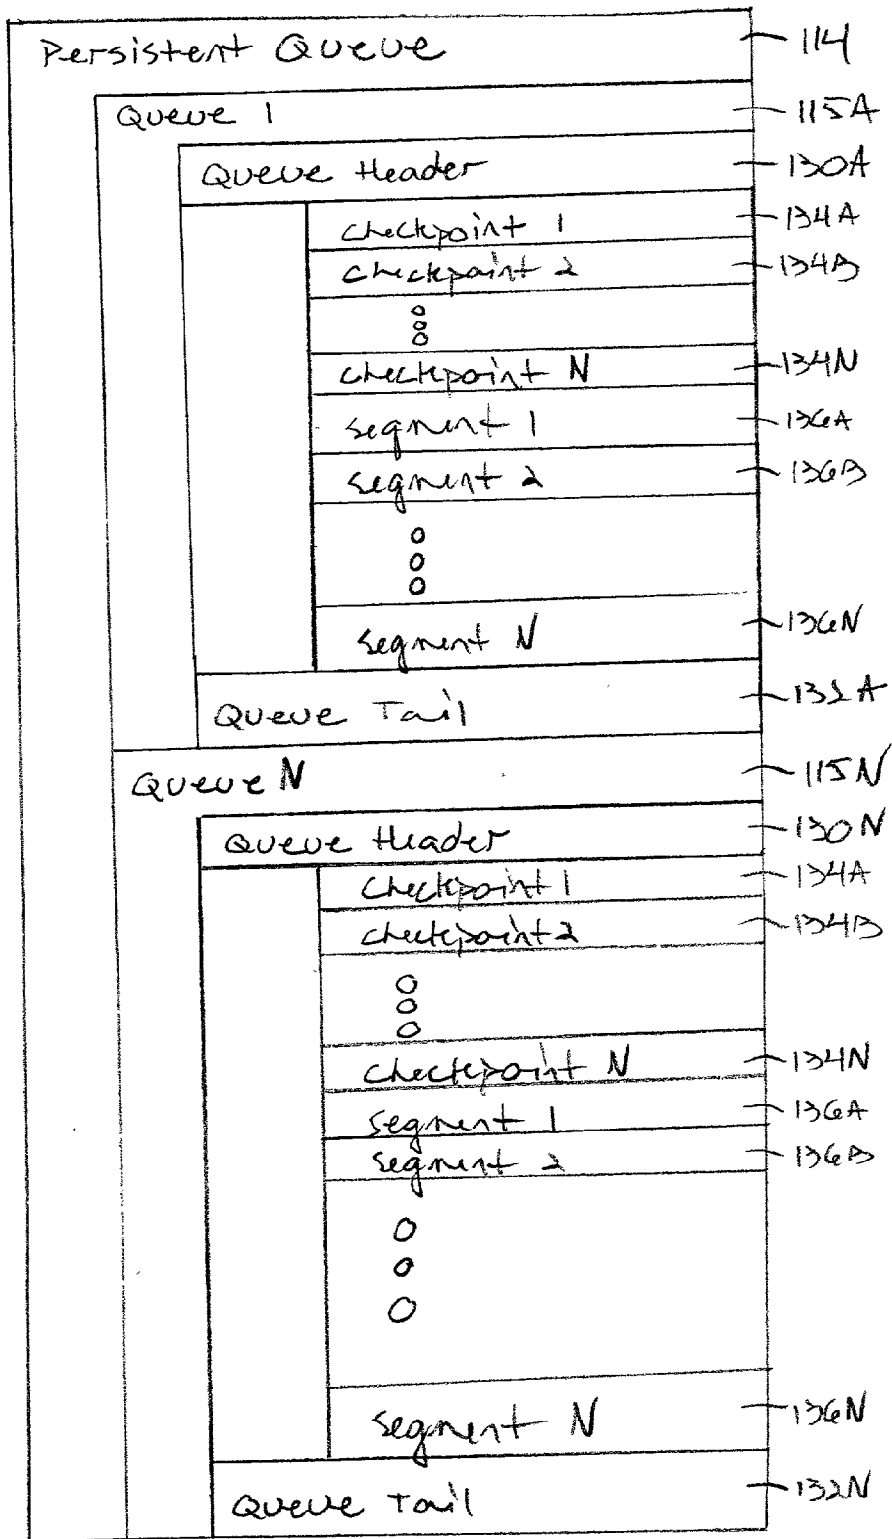 Persistent Queue 114
Queue 1 115A
Queue Header 130A
checkpoint 1 134A
checkpoint 2 134B
checkpoint N 134N
segment 1 136A
segment 2 136B
segment N 136N
Queue Tail 132A
Queue N 115N
Queue Header 130N
checkpoint 1 134A
checkpoint 2 134B
checkpoint N 134N
segment 1 136A
segment 2 136B
segment N 136N
Queue Tail 132N